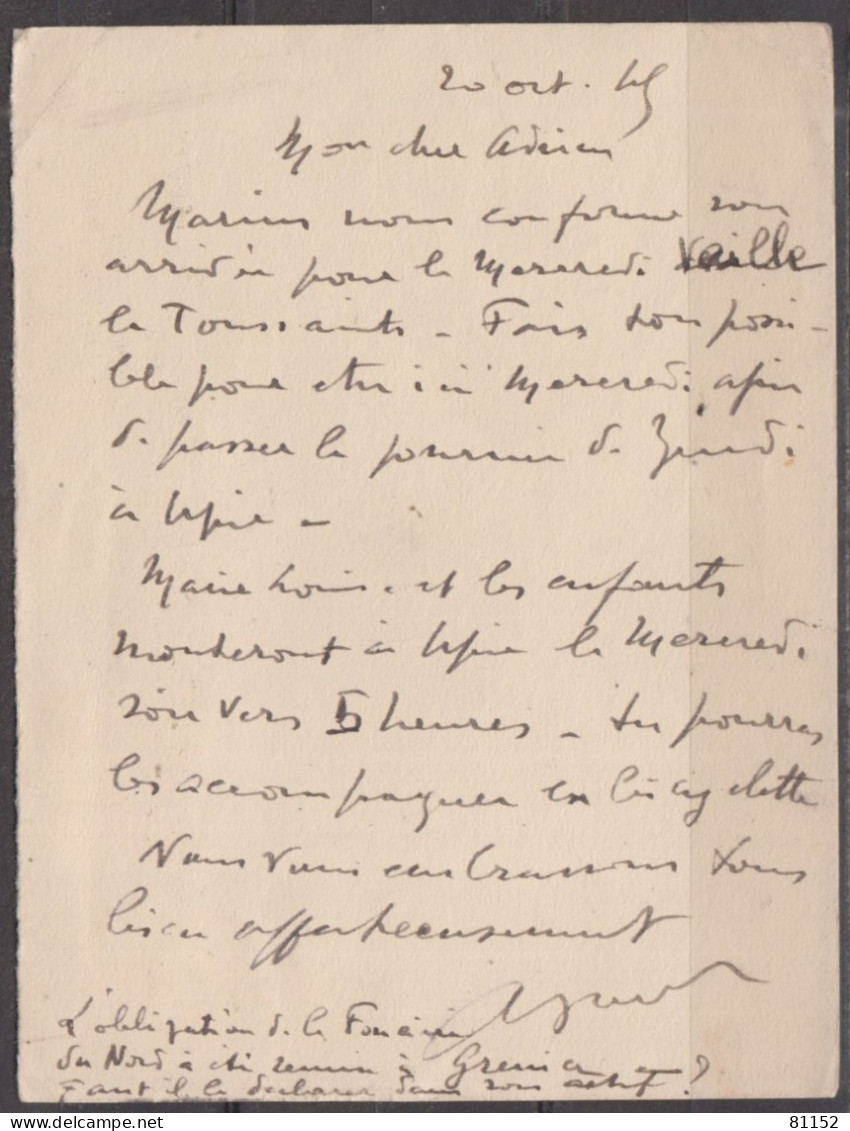 20 oct. 45
Mon cher Adrien
Marius nous confirme son
arrivée pour le Mercredi veille
la Toussaints - Fais ton possi-
ble pour être ici Mercredi afin
de passer la journée de Jeudi
à Upie -
Marie Louise et les enfants
monteront à Upie le Mercredi
soir vers 5 heures - tu pourras
les accompagner en bicyclette
Nous vous embrassons tous
bien affectueusement
L'obligation de la Foncière
du Nord a été remise à
Faut il la déclarer dans son actif ?
81152